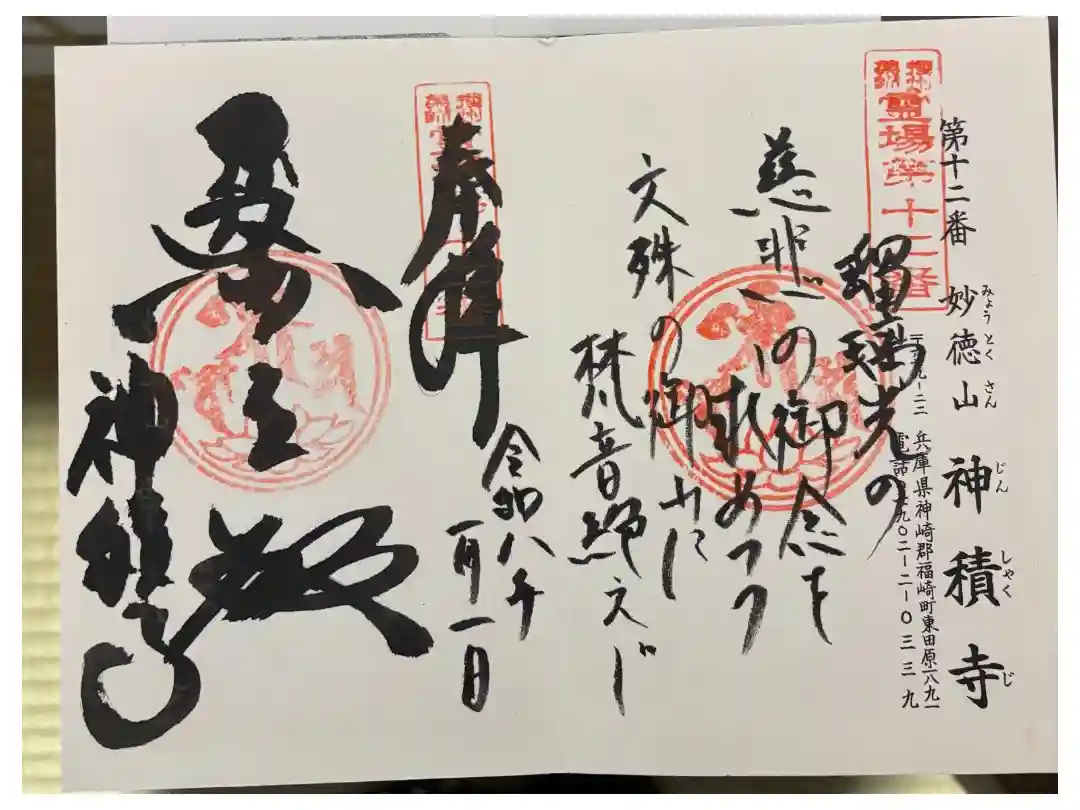 第十二番 妙徳山 神積寺
みょうとくさん じんしゃくじ
兵庫県神崎郡福崎町東田原一八九一
電話〇七九〇二ー二ー〇三三九
霊場第十二番
瑠璃光の
慈悲の御念を
求めつつ
文殊の御山に
梵音絶えじ
奉拝
令和八年
一月一日
神積寺